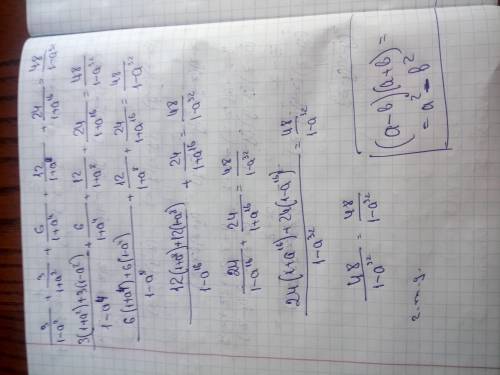 3/(1-a²) + 3/(1+a²) + 6/(1+a⁴) + 12/(1+a⁸) + 24/(1+a¹⁶) = 48/(1-a³²)
(3(1+a²)+3(1-a²))/(1-a⁴) + 6/(1+a⁴) + 12/(1+a⁸) + 24/(1+a¹⁶) = 48/(1-a³²)
(6(1+a⁴)+6(1-a⁴))/(1-a⁸) + 12/(1+a⁸) + 24/(1+a¹⁶) = 48/(1-a³²)
(12(1+a⁸)+12(1+a⁸))/(1-a¹⁶) + 24/(1+a¹⁶) = 48/(1-a³²)
24/(1-a¹⁶) + 24/(1+a¹⁶) = 48/(1-a³²)
(24(1+a¹⁶)+24(1-a¹⁶))/(1-a³²) = 48/(1-a³²)
48/(1-a³²) = 48/(1-a³²)
ч.т.д.
(a-b)(a+b)=
=a²-b²